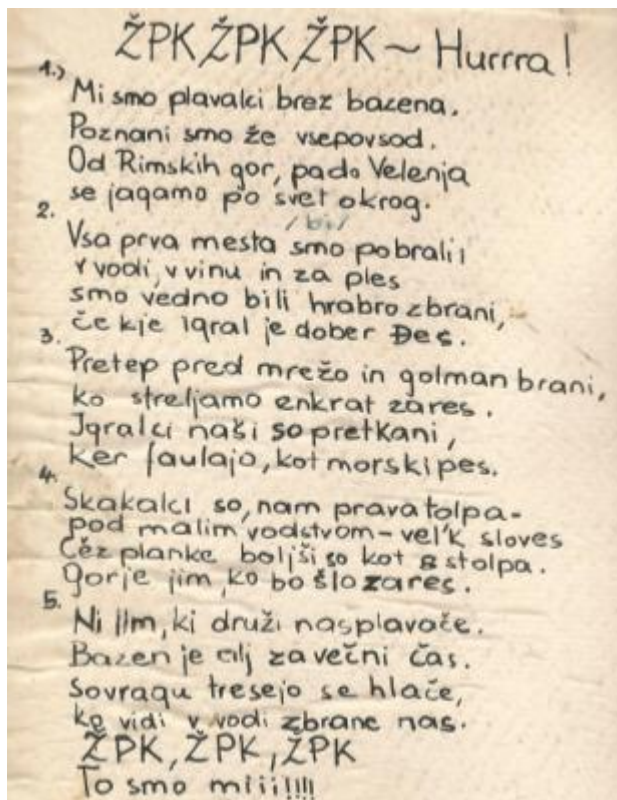 ŽPK ŽPK ŽPK ~ Hurrra!
1.) Mi smo plavalci brez bazena.
Poznani smo že vsepovsod.
Od Rimskih gor, pado Velenja
se jagamo po svet okrog.
/bis/
2. Vsa prva mesta smo pobrali
v vodi, v vinu in za ples
smo vedno bili hrabro zbrani,
če kje igral je dober Đes.
3. Pretep pred mrežo in golman brani,
ko streljamo enkrat zares.
Igralci naši so pretkani,
ker faulajo, kot morski pes.
4. Skakalci so, nam prava tolpa-
pod malim vodstvom - vel'k sloves
Čez planke boljši so kot s stolpa.
Gorje jim, ko bo šlo zares.
5. Ni lim, ki druži nas plavače.
Bazen je cilj za večni čas.
Sovragu tresejo se hlače,
ko vidi v vodi zbrane nas.
ŽPK, ŽPK, ŽPK
To smo miii!!!!